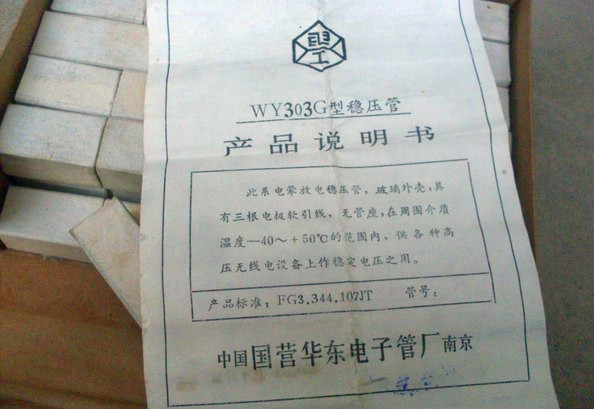 WY303G型稳压管
产品说明书
此系电晕放电稳压管，玻璃外壳，具
有三根电极软引线，无管座，在周围介质
温度—40～+50℃的范围内，供各种高
压无线电设备上作稳定电压之用。
产品标准：FG3.344.107JT 管号：
中国国营华东电子管厂南京